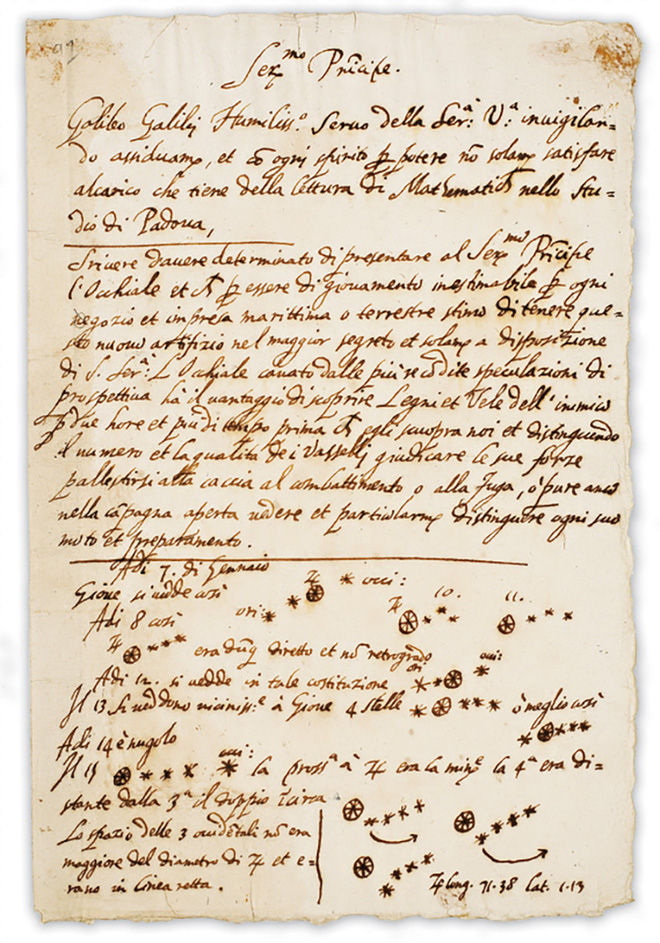 Ser.mo Prīcipe.
Galileo Galilei Humiliss.o Servo della Ser.a V.a invigilan=
do assiduam.e, et cō ogni spirito p̲ potere nō solam.e satisfare
alcarico che tiene della lettura di Mathematicħ nello Stu=
dio di Padova,
Scrivere davere determinato di presentare al Ser.mo Prīcipe
l'Occhiale et cħ p̲ essere di giovamento inestimabile p̲ ogni
negozio et impresa marittima o terrestre stimo di tenere que=
sto nuovo artifizio nel maggior segreto et solam.e a disposizione
di S. Ser.a: L'Occhiale cavato dalle più recōdite speculazioni di
prospettiva hà il vantaggio di scoprire Legni et Vele dell'inimico
p̲ due hore et più di tempo prima cħ egli scuopra noi et distinguendo
il numero et la qualità dei Vasselli giudicare le sue forze
pallestirsi alla caccia al combattimento o alla fuga, ò pure anco
nella cāpagna aperta vedere et particolarm.e distinguere ogni suo
moto et preparamento.
Adi 7. di Gennaio
Giove si vedde così ♃ occi:
Adi 8 così ori: ♃ 10. 11.
♃ era dūq diretto et nō retrogrado
Adi 12. si vedde in tale costituzione ori occi:
Il 13 si veddono viciniss.e à Giove 4 stelle ò meglio così
Adi 14 è nugolo
Il 15 occi: la pross.a à ♃ era la min.e la 4.a era di=
stante dalla 3.a il doppio īcirca
Lo spazio delle 3 occidētali nō era
maggiore del diametro di ♃ et e=
rano in linea retta.
♃ long. 71.38 Lat. 1.13